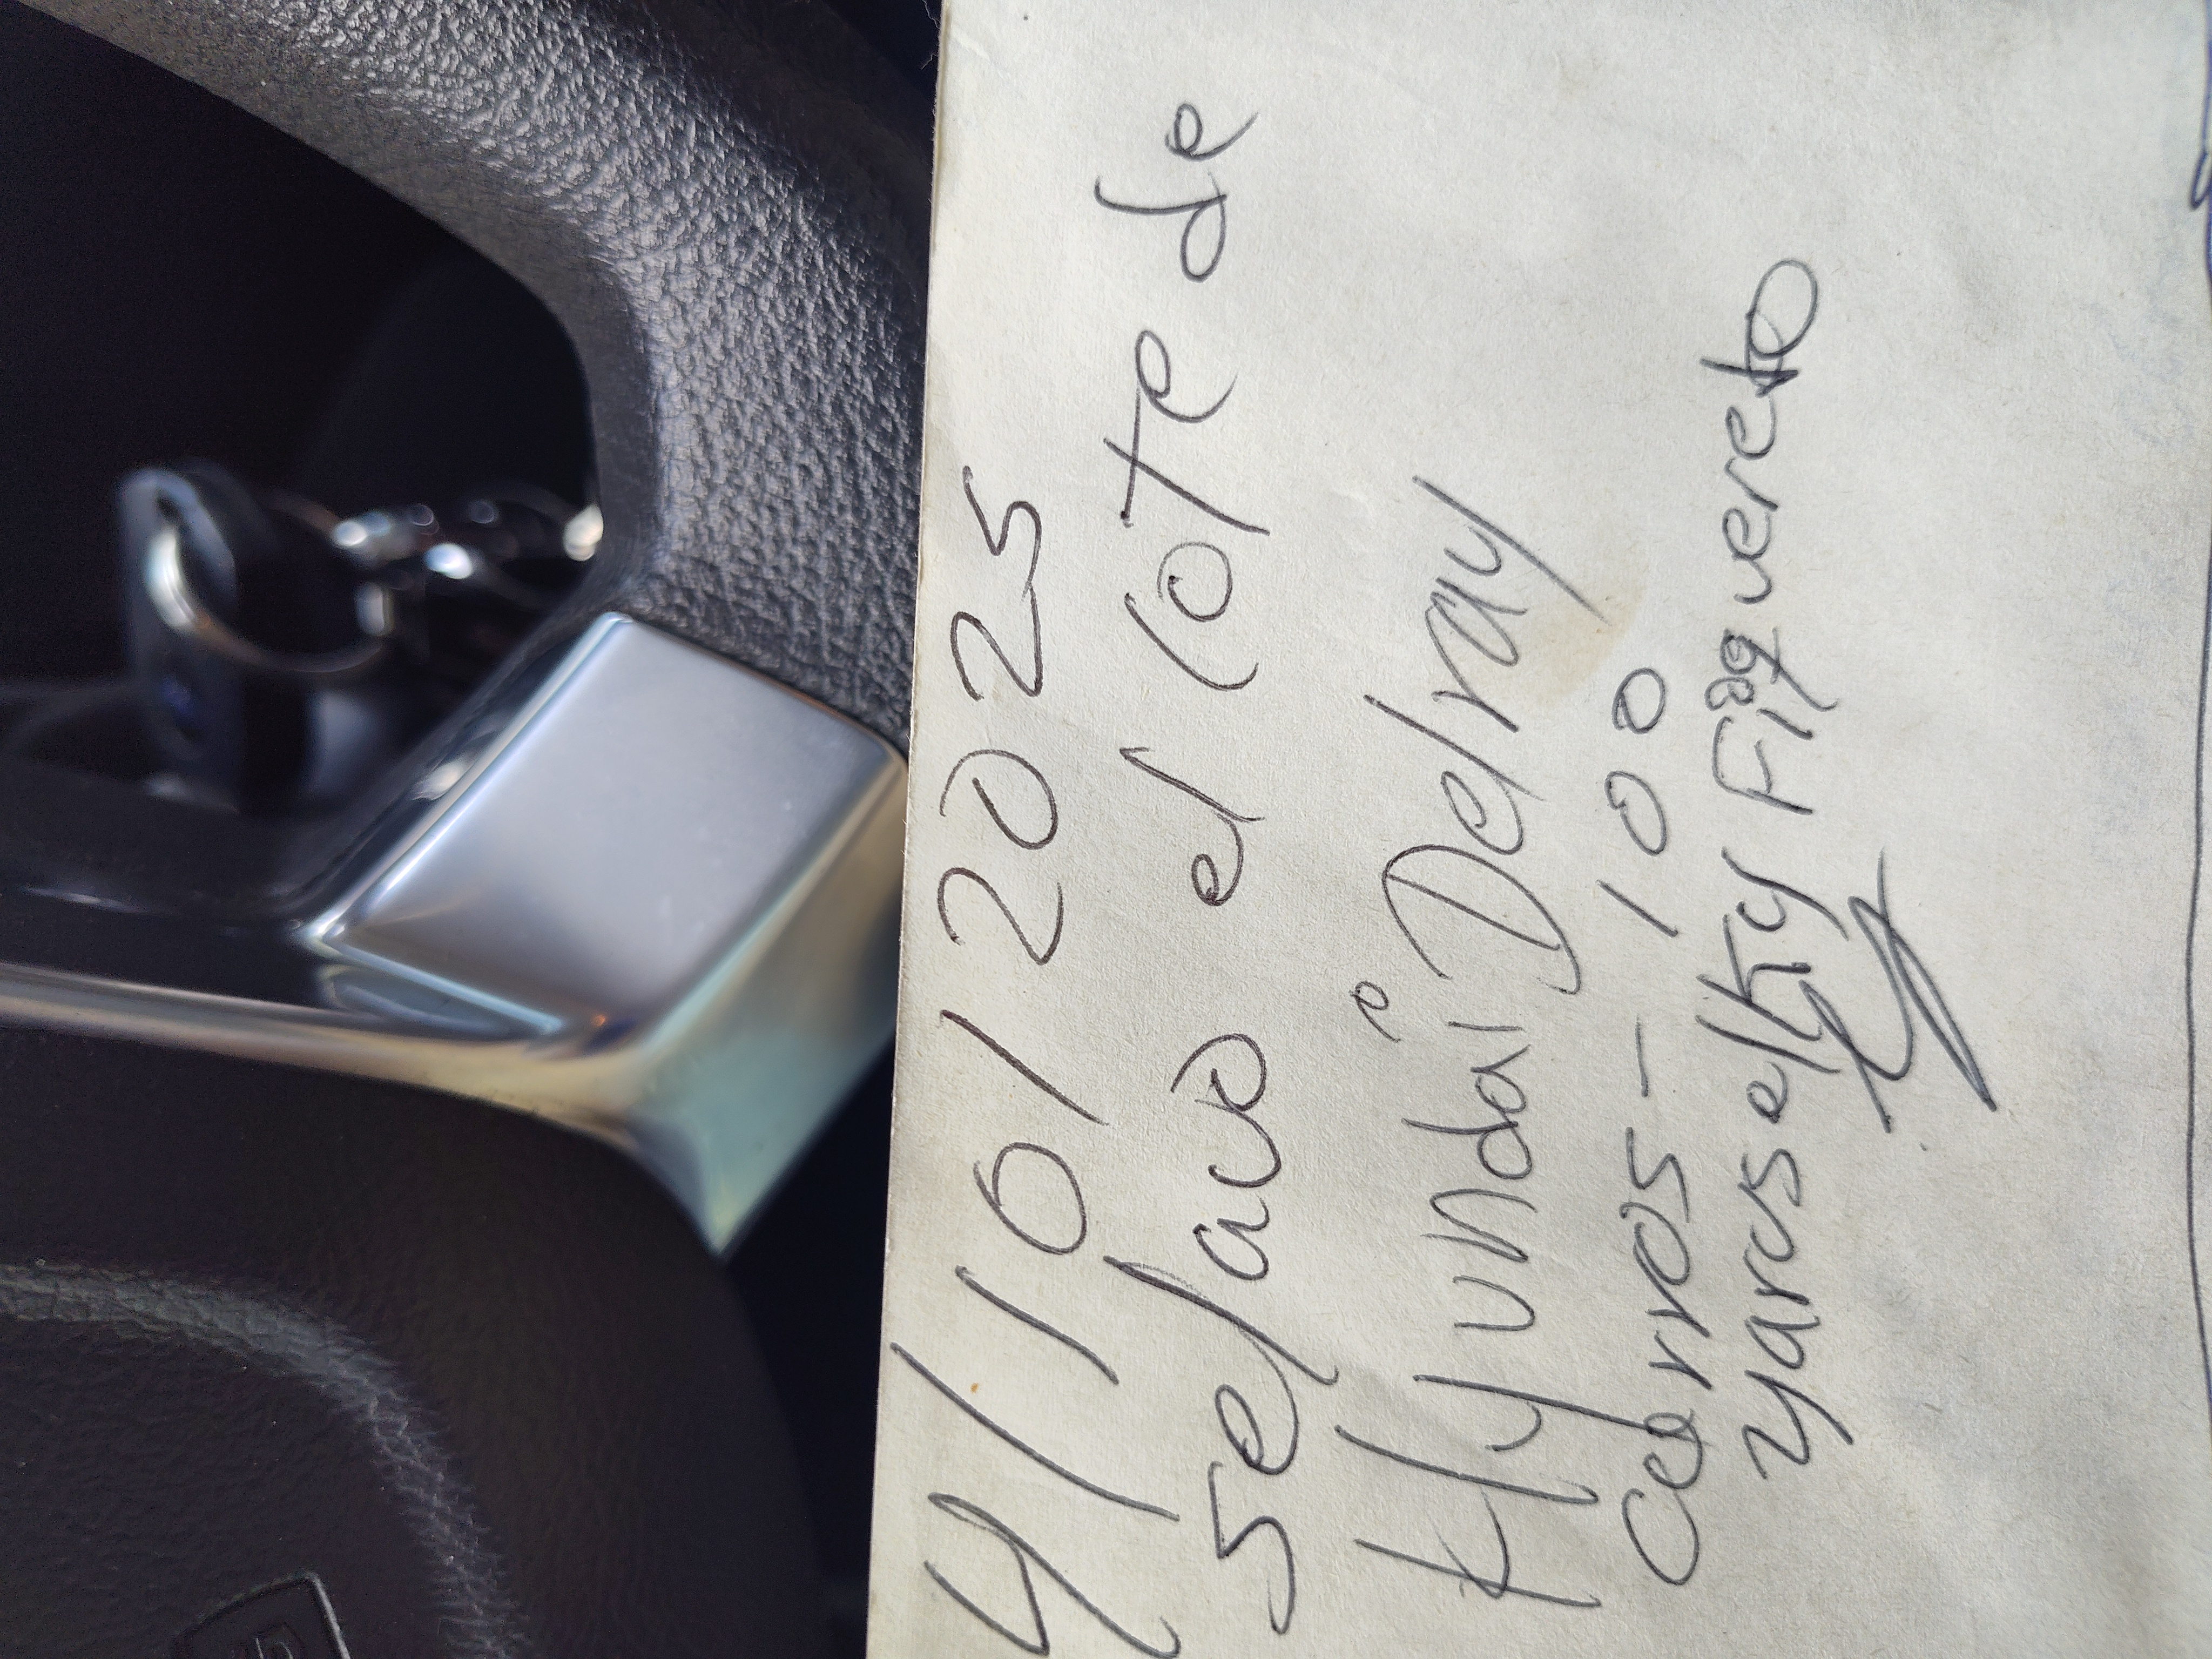 4/10/2025
se lavo el lote de
Hyundai Delray
carros - 100
yaroselky Figuereo